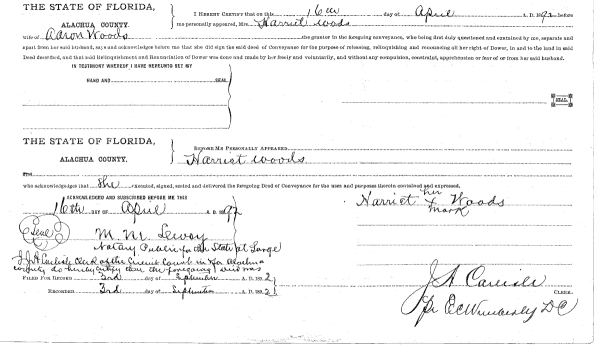 THE STATE OF FLORIDA,
ALACHUA COUNTY.
I HEREBY CERTIFY that on this 16th day of April A. D. 1892 before
me personally appeared, Mrs. Harriet Woods
wife of Aaron Woods the grantor in the foregoing conveyance, who being first duly questioned and examined by me, separate and
apart from her said husband, says and acknowledges before me that she did sign the said deed of Conveyance for the purpose of releasing, relinquishing and renouncing all her right of Dower, in and to the land in said
Deed described, and that said Relinquishment and Renunciation of Dower were done and made by her freely and voluntarily, and without any compulsion, constraint, apprehension or fear of or from her said husband.
IN TESTIMONY WHEREOF I HAVE HEREUNTO SET MY
HAND AND SEAL
SEAL.
THE STATE OF FLORIDA,
ALACHUA COUNTY.
BEFORE ME PERSONALLY APPEARED
Harriet Woods
and
who acknowledges that She executed, signed, sealed and delivered the foregoing Deed of Conveyance for the uses and purposes therein contained and expressed.
ACKNOWLEDGED AND SUBSCRIBED BEFORE ME THIS
16th DAY OF April A. D. 1892
Harriet her X mark Woods
Seal
M. M. Lewey
Notary Public for the State at Large
I J. A. Carlisle Clerk of the Circuit Court in & for Alachua
County do hereby certify that the foregoing deed was
FILED FOR RECORD 3rd day of September A. D. 1892
RECORDED 3rd day of September A. D. 1892
J A Carlisle
CLERK.
Pr E C Wimberly D C